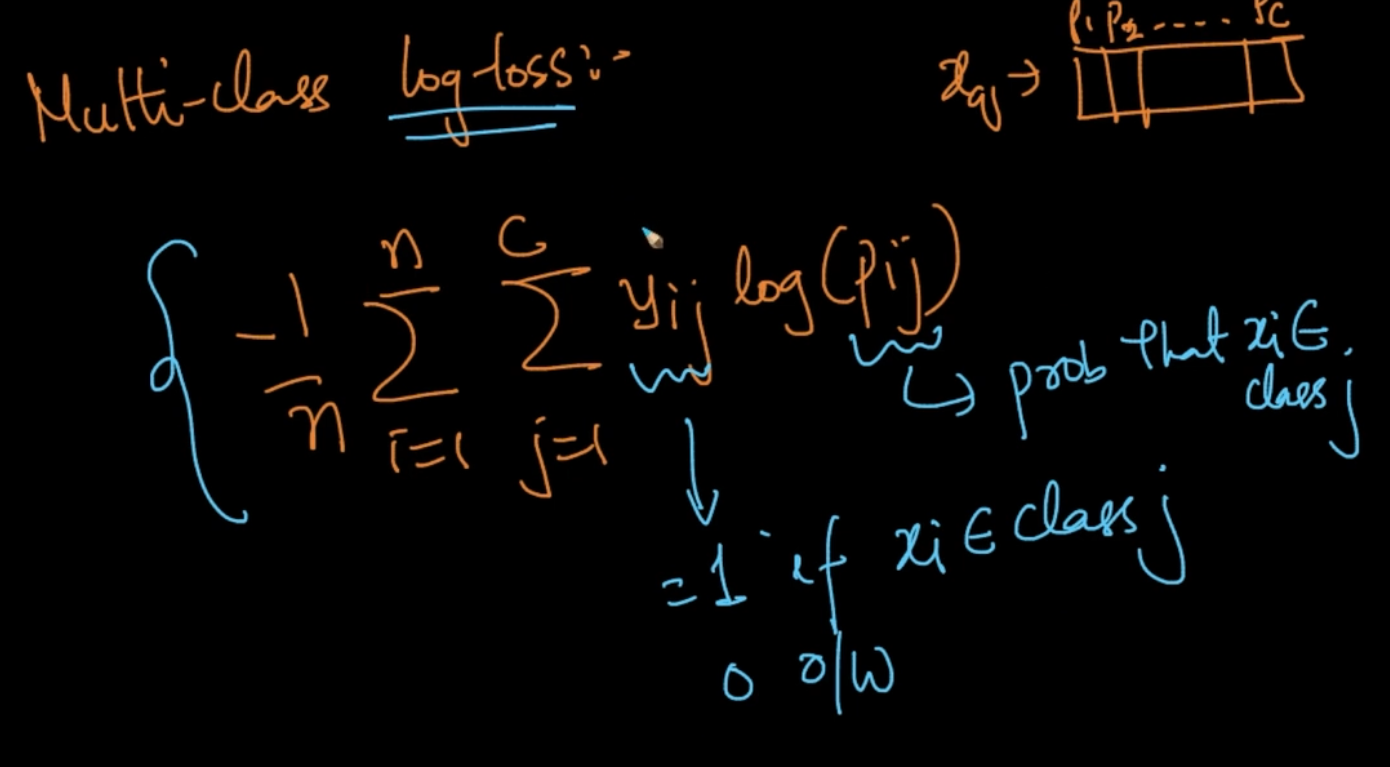 Multi-class log-loss:-
P1 P2 ..... Pc
xq →
-1/n n Σ i=1 C Σ j=1 yij log(Pij)
↳ prob that xi ∈ class j
↓
=1 if xi ∈ class j
0 o/w